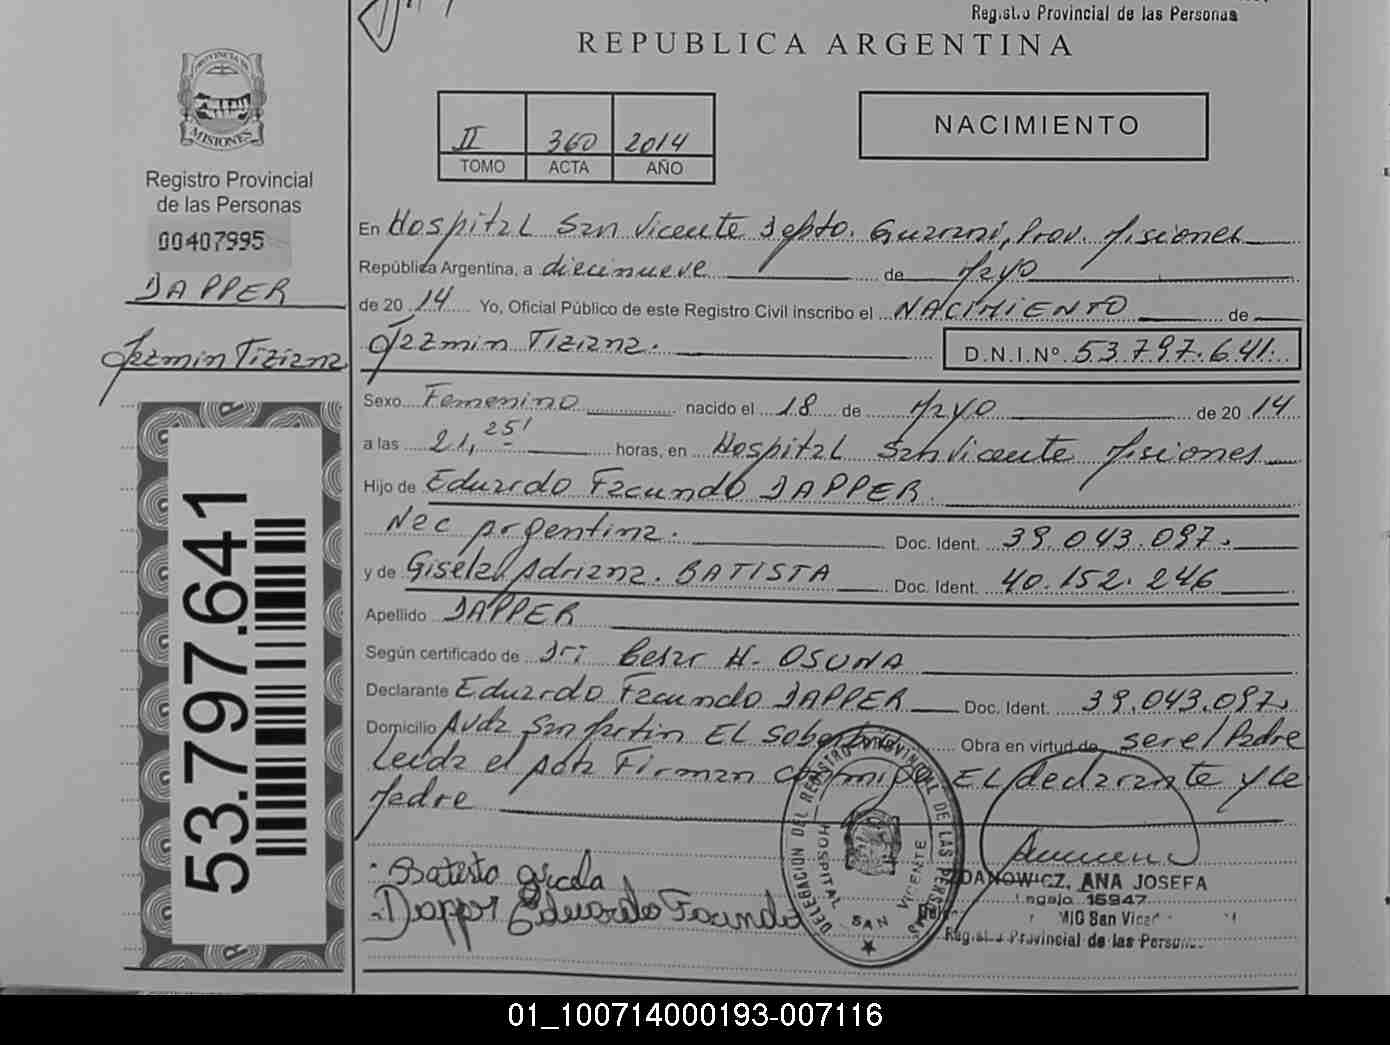 Registro Provincial de las Personas
REPUBLICA ARGENTINA
PROVINCIA DE
MISIONES
Registro Provincial
de las Personas
00407995
DAPPER
Jazmin Tiziana
53.797.641
II 360 2014
TOMO ACTA AÑO
NACIMIENTO
En Hospital San Vicente Depto. Guarani, Prov. Misiones
República Argentina, a diecinueve de Mayo
de 20 14 Yo, Oficial Público de este Registro Civil inscribo el NACIMIENTO de
Jazmin Tiziana. D.N.I.Nº 53.797.641.
Sexo Femenino nacido el 18 de Mayo de 20 14
a las 21,25' horas, en Hospital San Vicente Misiones
Hijo de Eduardo Facundo DAPPER
Nac Argentina. Doc. Ident. 39.043.097.
y de Gisela Adriana. BATISTA Doc. Ident. 40.152.246
Apellido DAPPER
Según certificado de H. OSUNA
Declarante Eduardo Facundo DAPPER Doc. Ident. 39.043.097.
Domicilio Avda San Martin EL Soberbio Obra en virtud de ser el Padre
Leida el acta Firman conmigo EL declarante y la
Madre
Batista gicela
Dapper Eduardo Facundo
DELEGACION DEL REGISTRO PROVINCIAL DE LAS PERSONAS
HOSPITAL SAN VICENTE
ZDANOWICZ, ANA JOSEFA
Legajo 15947
San
Registro Provincial de las Personas
01_100714000193-007116